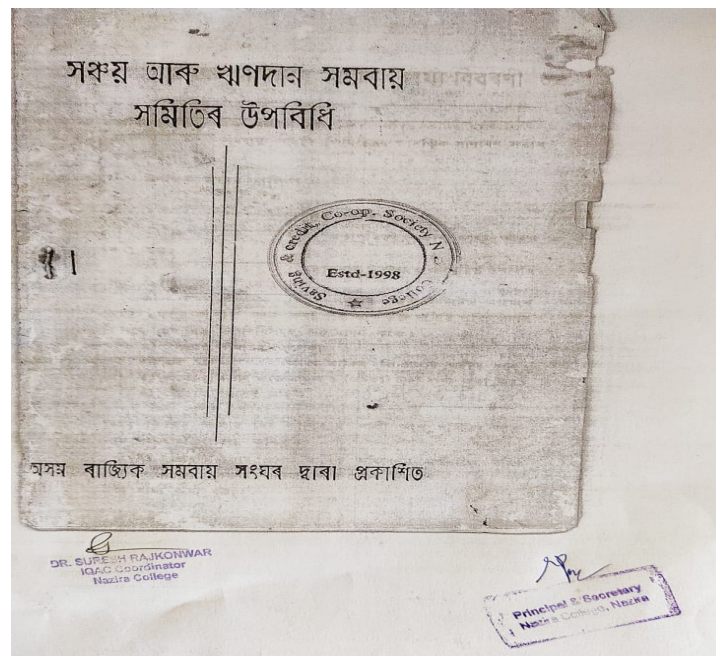 সঞ্চয় আৰু ঋণদান সমবায়
সমিতিৰ উপবিধি
Saving & credit, Co-op. Society N
College
Estd-1998
অসম ৰাজ্যিক সমবায় সংঘৰ দ্বাৰা প্ৰকাশিত
DR. SURESH RAJKONWAR
IQAC Coordinator
Nazira College
Principal & Secretary
Nazira College, Nazira